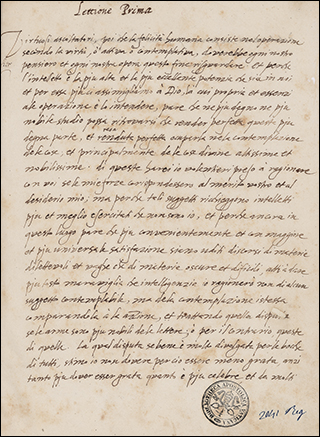 Lettione Prima
Virtuosi ascoltatori, poi che la felicità humana consiste nell'operatione
secondo la virtù, ò attiva ò contemplativa, doverebbe ogni nostro
pensiero et ogni nostra opera questo fine risguardare, et perche
l'intelletto è la più alta et la più eccellente potenza che sia in noi
et per essa più ci assimigliamo à Dio, la cui propria et essenza
ale operatione è lo intendere, pare che ne più degno ne più
nobile studio possa ritrovarsi, che render perfetta questa più
degna parte, et perfetta nella contemplatione
dele cose, et principalmente dele cose divine altissime et
nobilissime: di queste havrei io volentieri preso a ragionare
con voi se le mie forze corrispondessero al merito vostro et al
desiderio mio, ma perche tali suggetti richieggono intelletti
più et meglio esercitati che non sono io, et perche ancora in
questo luogo pare che più convenientemente et con maggior
et più universale satisfazione sieno uditi discorsi di materie
dilettevoli et che di materie oscure et difficili, atti à dare
più tosto maraviglia che intelligenzia, io ragionerò non di alcun
suggetto contemplabile, ma dela contemplatione istessa
comparandola à la azione, et trattando quella disputa
se le arme sono più nobili dele lettere, ò per il contrario queste
di quelle. La qual disputa se bene è molto divulgata per le bocche
di tutti, stimo io non dovere perciò essere meno grata, anzi
tanto più dover esser grata quanto è più celebre, et da molti
2041 Reg